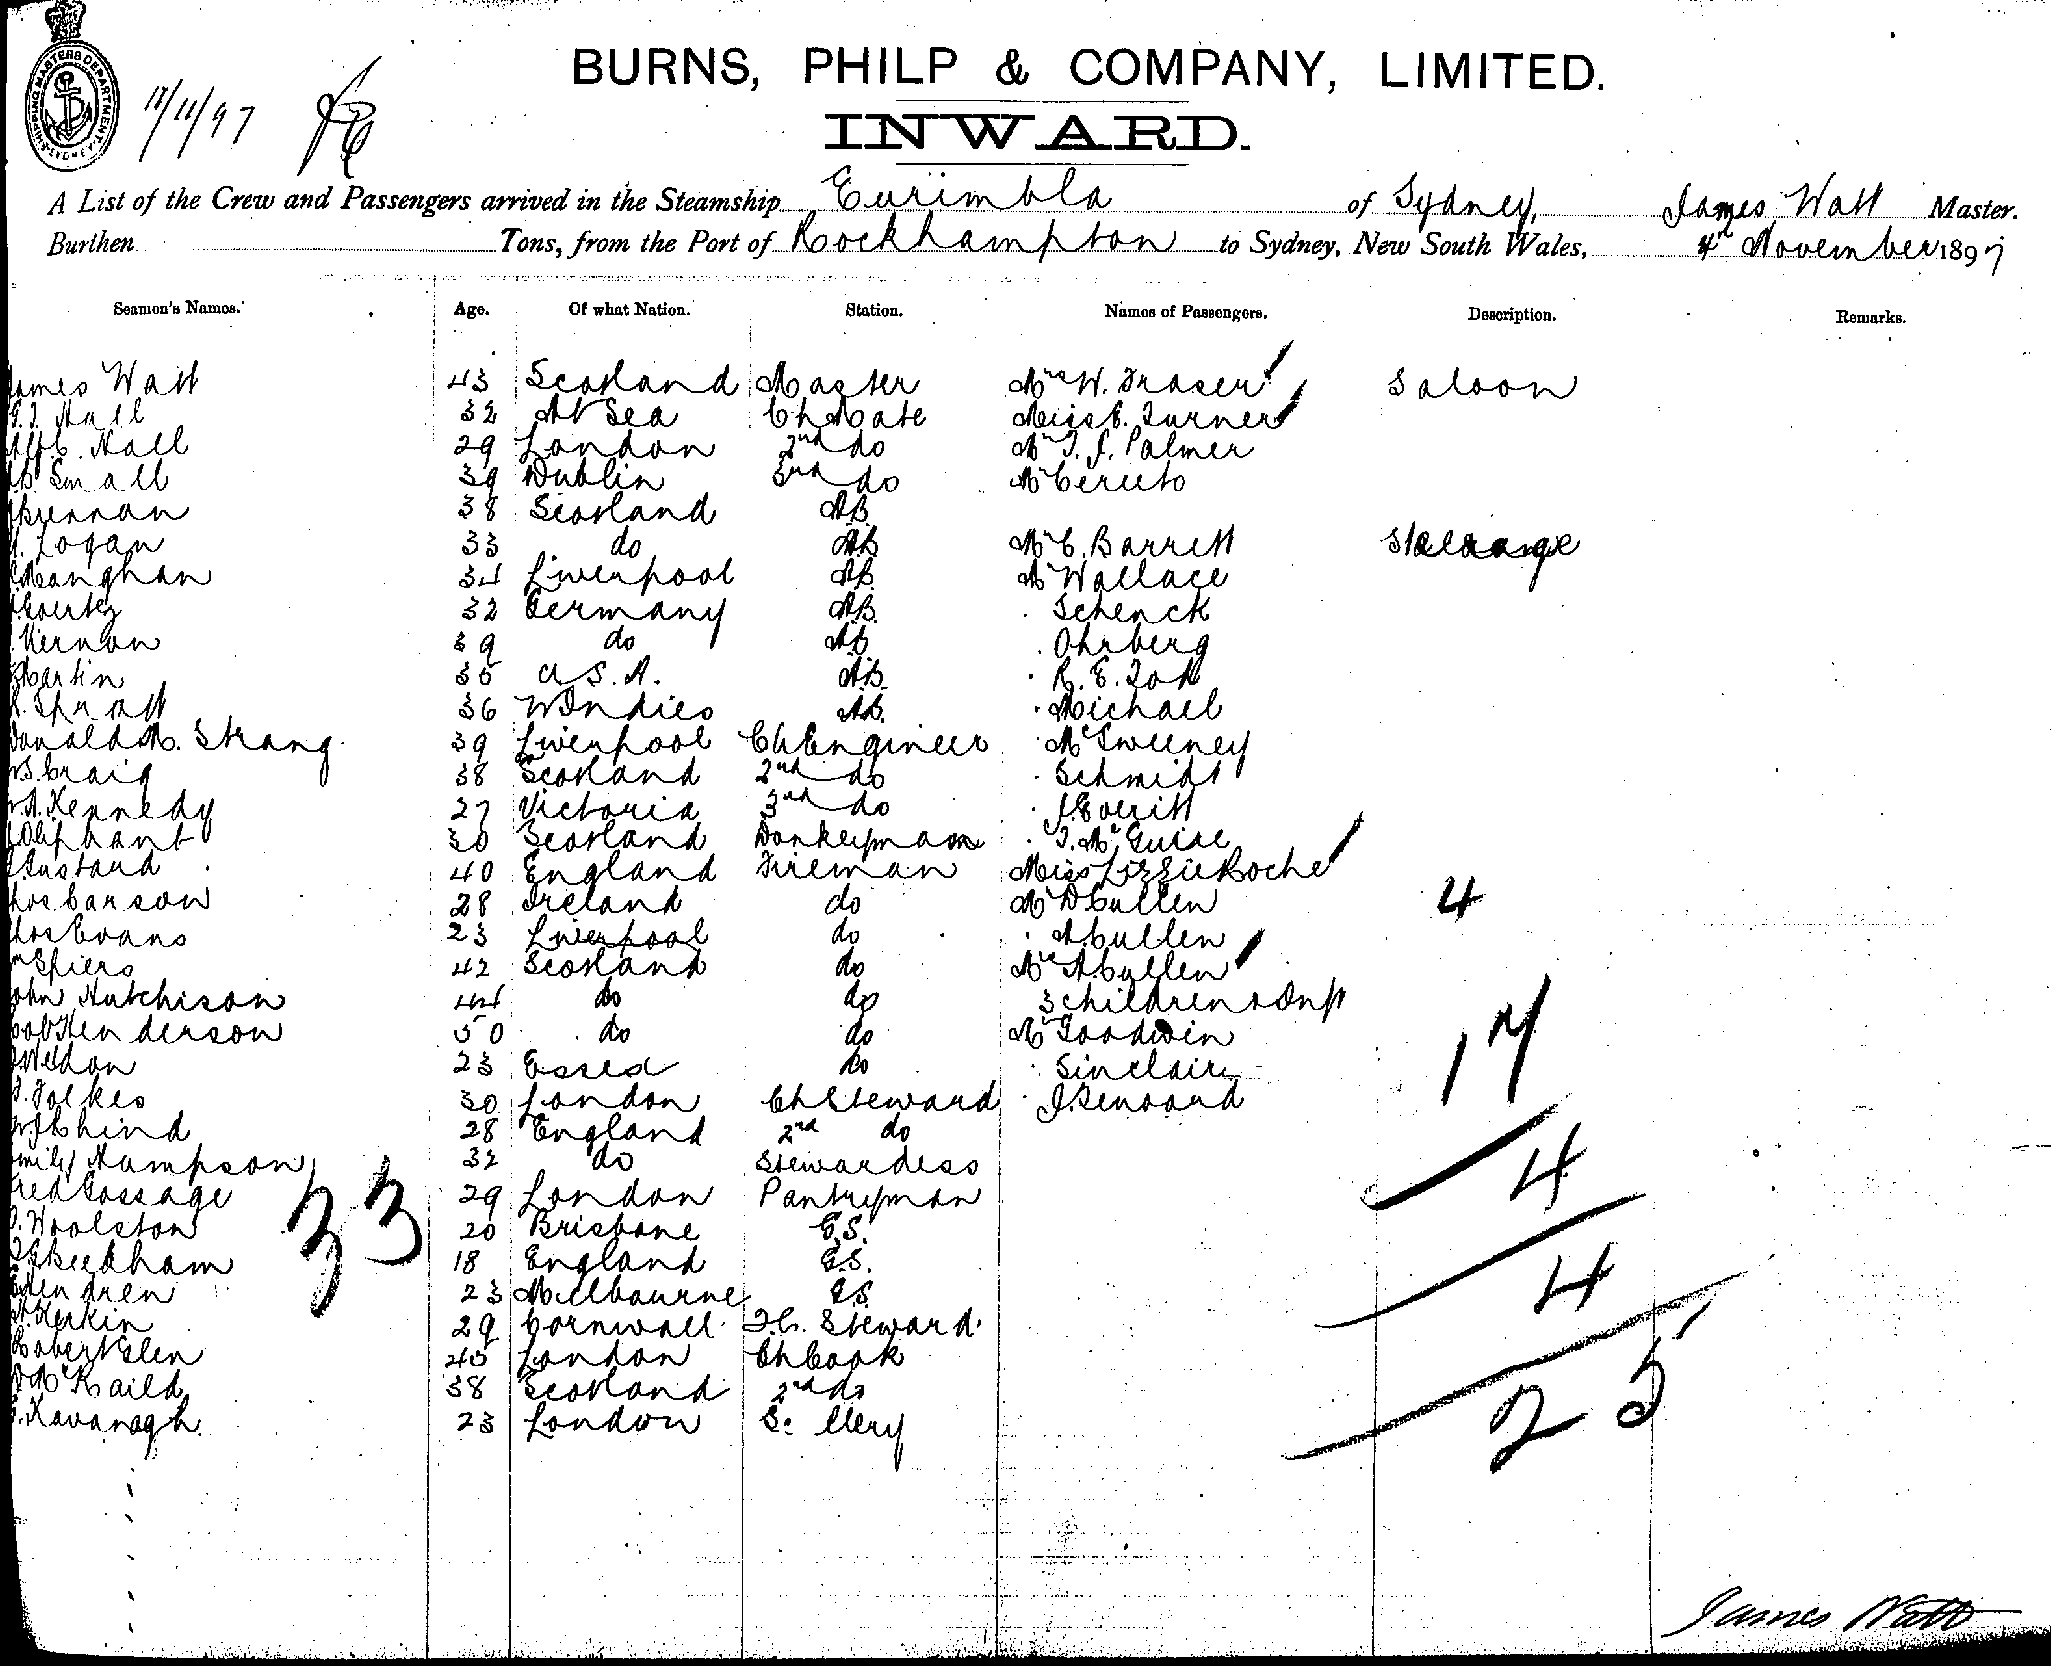 SHIPPING MASTERS DEPARTMENT SYDNEY
11/11/97
BURNS, PHILP & COMPANY, LIMITED.
INWARD.
A List of the Crew and Passengers arrived in the Steamship Eurimbla of Sydney, James Watt Master.
Burthen Tons, from the Port of Rockhampton to Sydney, New South Wales, 4th November 1897
Seamen's Names. Age. Of what Nation. Station. Names of Passengers. Description. Remarks.
James Watt 43 Scotland Master Mrs W. Fraser Saloon
Hall 32 At Sea Ch Mate Miss E. Turner
Hall 29 London 2nd do Mr T. J. Palmer
Small 39 Dublin 3rd do Mr Ceruto
Brennan 38 Scotland AB
Logan 33 do AB Mr C. Barrett Steerage
Meanghan 34 Liverpool AB Mr Wallace
Goertz 32 Germany AB Schenck
Vernon 39 do AB Ohrberg
Martin 35 U.S.A. AB R. E.
Spratt 36 W Indies AB Michael
Donald M. Strang 39 Liverpool Ch Engineer McSweeney
Craig 38 Scotland 2nd do Schmidt
Kennedy 27 Victoria 3rd do J. Everitt
Oliphant 30 Scotland Donkeyman T. McGuire
Gustard 40 England Fireman Miss Lizzie Roche
Thos Carson 28 Ireland do Mr D Cullen 4
Thos Evans 23 Liverpool do A Cullen
Wm Spiers 42 Scotland do Mrs A Cullen
John Hutchison 44 do do 3 children & Inft
Robt Henderson 50 do do Mr Goodwin 17
Weldon 23 Essex do Sinclair
Folkes 30 London Ch Steward J. Renoard
Chind 28 England 2nd do 4
Emily Hampson 32 do Stewardess
Fred Gossage 29 London Pantryman
33
Woolston 20 Brisbane G.S.
Beedham 18 England G.S. 4
Hendren 23 Melbourne G.S.
Kerkin 29 Cornwall F.C. Steward
Robert Glen 45 London Ch Cook
McKaild 38 Scotland 2nd do 25
Kavanagh 23 London Sc llery
James Watt